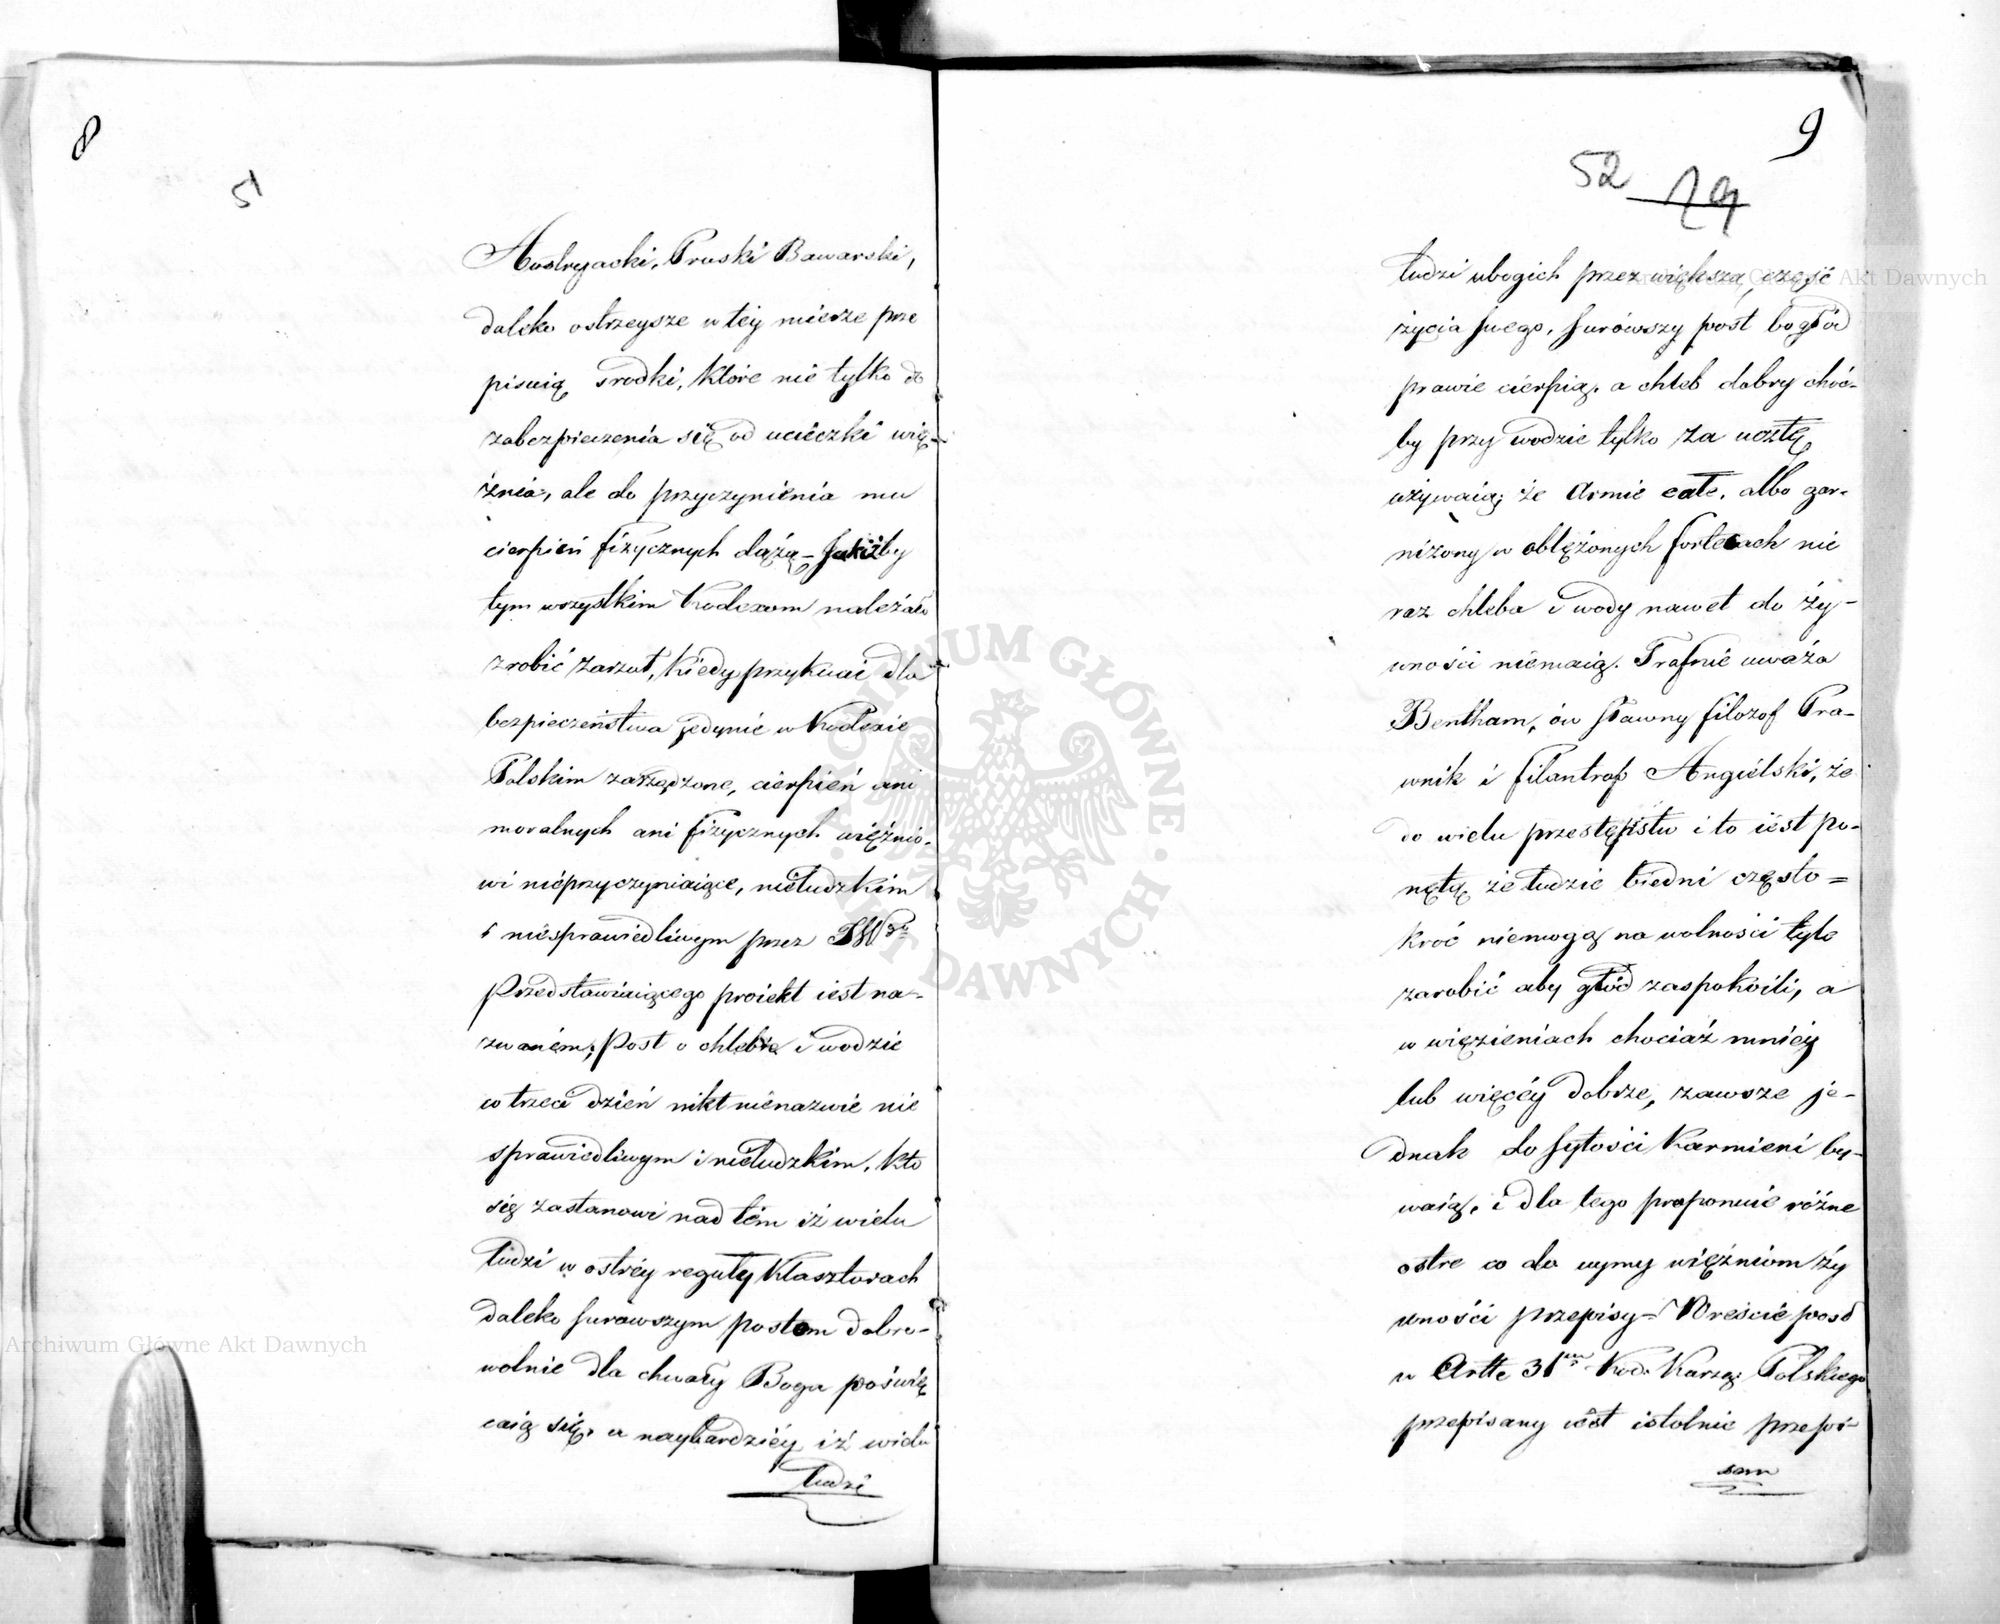 8
51
Austryacki, Pruski Bawarski,
daleko ostrzeysze w tey mierze prze
pisuią srodki, które nie tylko do
zabezpieczenia się od ucieczki wię-
źnia, ale do przyczynienia mu
cierpień fizycznych dążą – Jakiżby
tym wszystkim Kodexom należało
zrobić zarzut, kiedy przykucie dla
bezpieczeństwa jedynie w Kodexie
Polskim zarządzone, cierpień ani
moralnych ani fizycznych więźnio-
wi nieprzyczyniaiące, nieludzkim
i niesprawiedliwym przez
Przedstawiaiącego proiekt iest na-
zwaném; Post o chlebie i wodzie
co trzeci dzień nikt nienazwie nie
sprawiedliwym i nieludzkim, kto
się zastanowi nad tém iż wielu
ludzi w ostréy reguły Klasztorach
daleko surowszym postom dobro-
wolnie dla chwały Boga poświę
caią się, a naybardziéy iż wielu
ludzi
9
52 19
ludzi ubogich przez większą część
życia swego, surówszy post bo głód
prawie cierpią, a chleb dobry choć-
by przy wodzie tylko za ucztę
używaią; że Armie całe, albo gar-
nizony w oblężonych fortecach nie
raz chleba i wody nawet do ży-
wności niemaią. Trafnie uważa
Bentham, ów sławny filozof Pra-
wnik i filantrop Angielski, że
do wielu przestępstw i to iest po-
nętą że ludzie biedni często=
kroć niemogą na wolności tyle
zarobić aby głód zaspokoili, a
w więzieniach chociaż mniéy
lub więcéy dobrze, zawsze je-
dnak do sytości karmieni by-
waią, i dla tego proponuie różne
ostre co do uymy więźniom ży
wności przepisy – Wreście post
w Artle 31ym Kod: Karzą: Polskiego
przepisany iest istotnie przepi-
sem
Archiwum Główne Akt Dawnych
Archiwum Główne Akt Dawnych
ARCHIWUM GŁÓWNE · AKT DAWNYCH ·